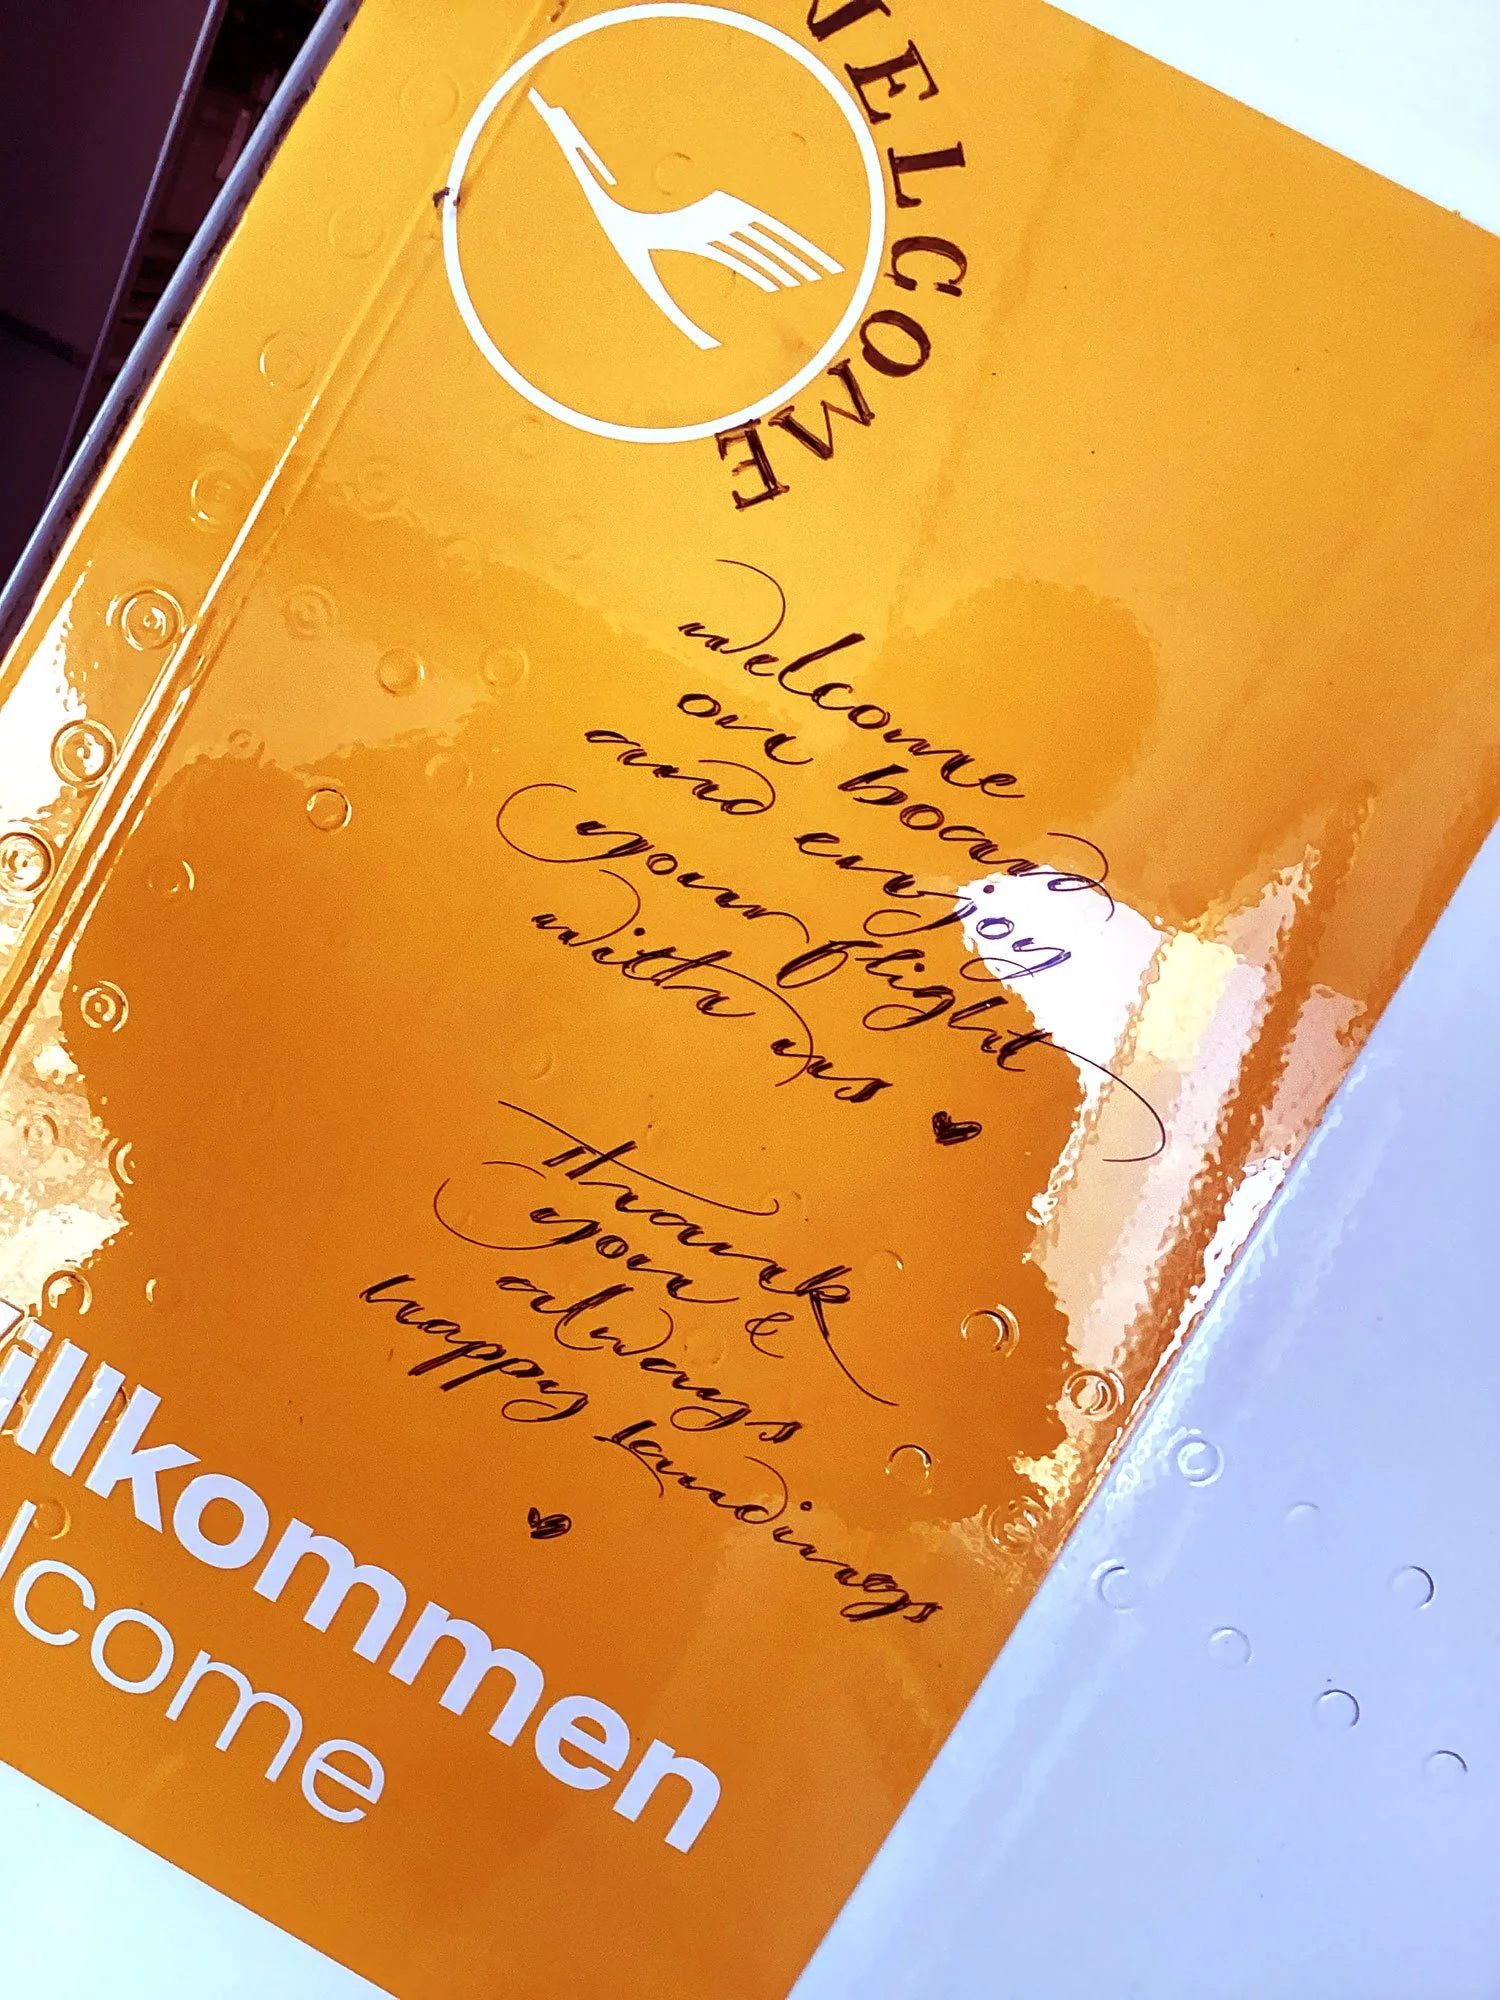 WELCOME
welcome
on board
and enjoy
your flight
with us
thank
you &
always
happy landings
Willkommen
Welcome